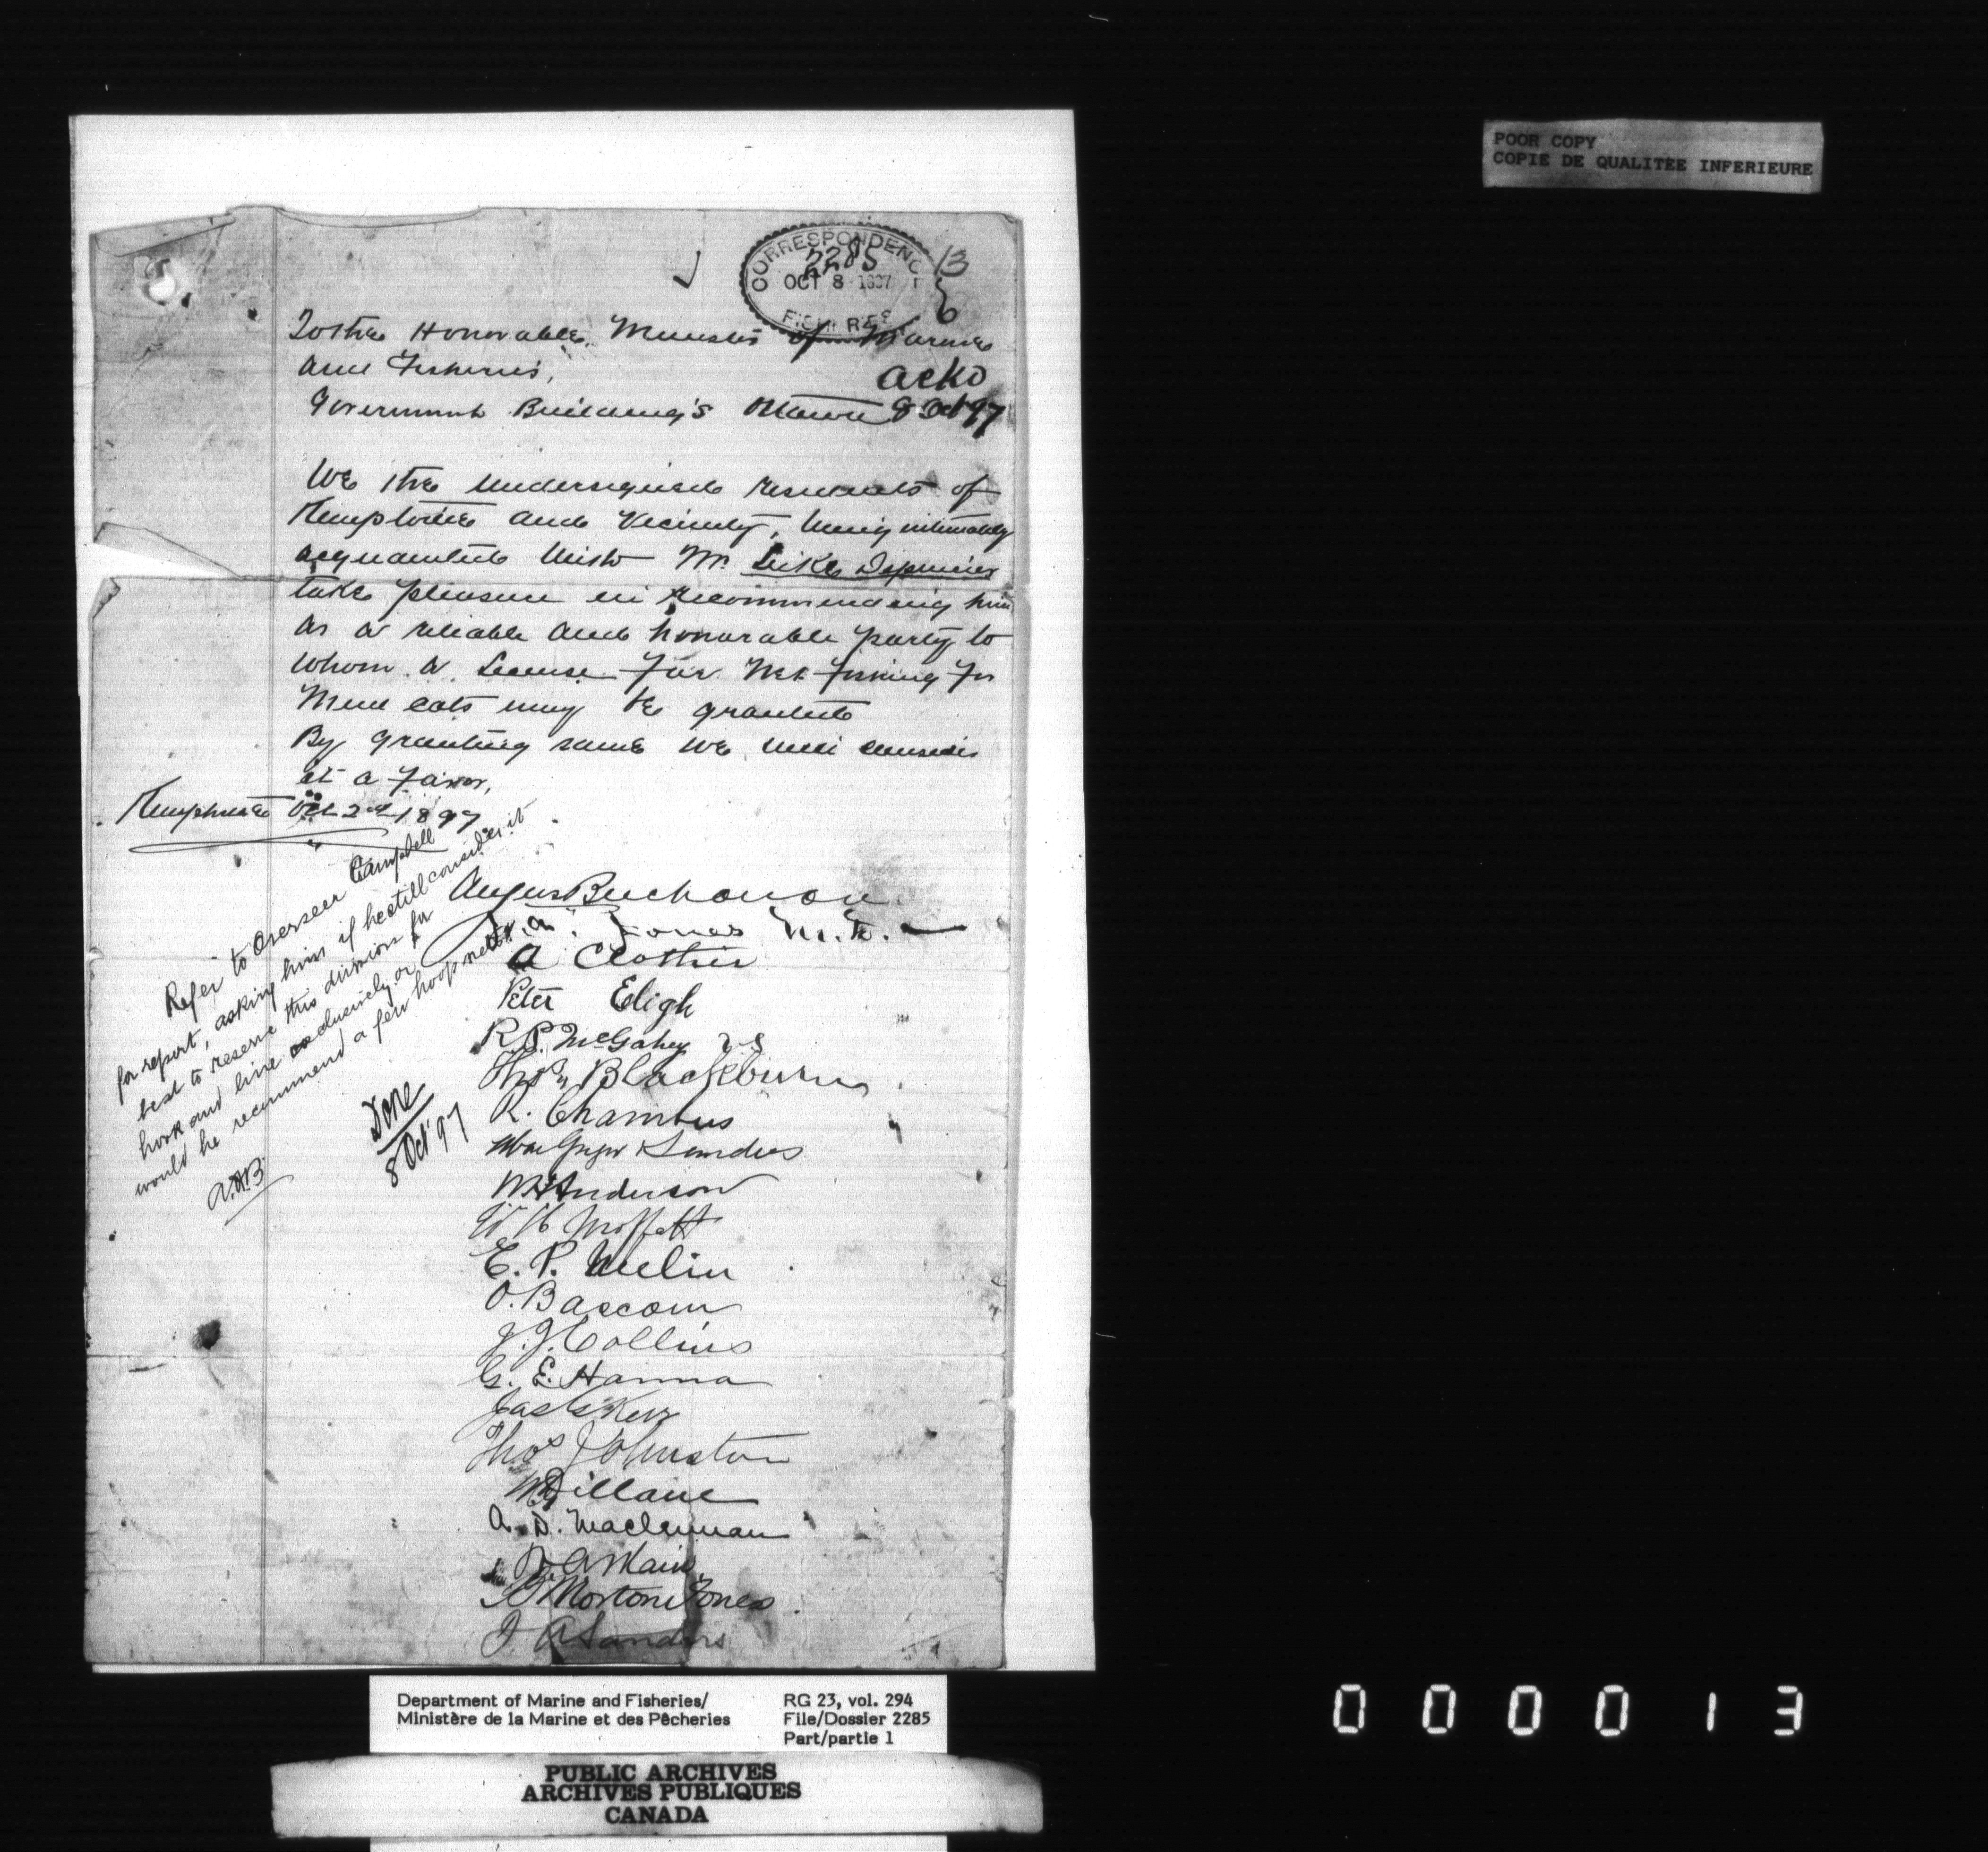 POOR COPY
COPIE DE QUALITEE INFERIEURE
CORRESPONDENC
2285
OCT 8 1897
13
To the Honorable Minister of Marine
and Fisheries,
ackd
Government Building's Ottawa 8 Oct 97
We the undersigned residents of
Kemptville and vicinity, being intimately
acquainted with Mr. Luke
take pleasure in recommending him
as a reliable and honorable party to
whom a License for Net fishing for
Mud cats may be granted
By granting same we will consider
it a favor,
Kemptville Oct 2nd 1897
Refer to Overseer Campbell
for report, asking him if he still considers it
best to reserve this division for
hook and line exclusively or
would he recommend a few hoop nets.
Done
8 Oct 97
Angus Buchanan
Jones M.D.
A Clothier
Peter Eligh
R. P. McGahey V.S
Thos Blackburn
R. Chambers
MacGregor Sanders
W Anderson
W H Moffatt
E. P. Meelin
O. Bascom
J. J. Collins
G. E. Hanna
Jas Kerr
Thos Johnston
Dillane
A. D. Maclennan
Main
Morton Jones
J A Sanders
Department of Marine and Fisheries/
Ministère de la Marine et des Pêcheries
RG 23, vol. 294
File/Dossier 2285
Part/partie 1
PUBLIC ARCHIVES
ARCHIVES PUBLIQUES
CANADA
000013